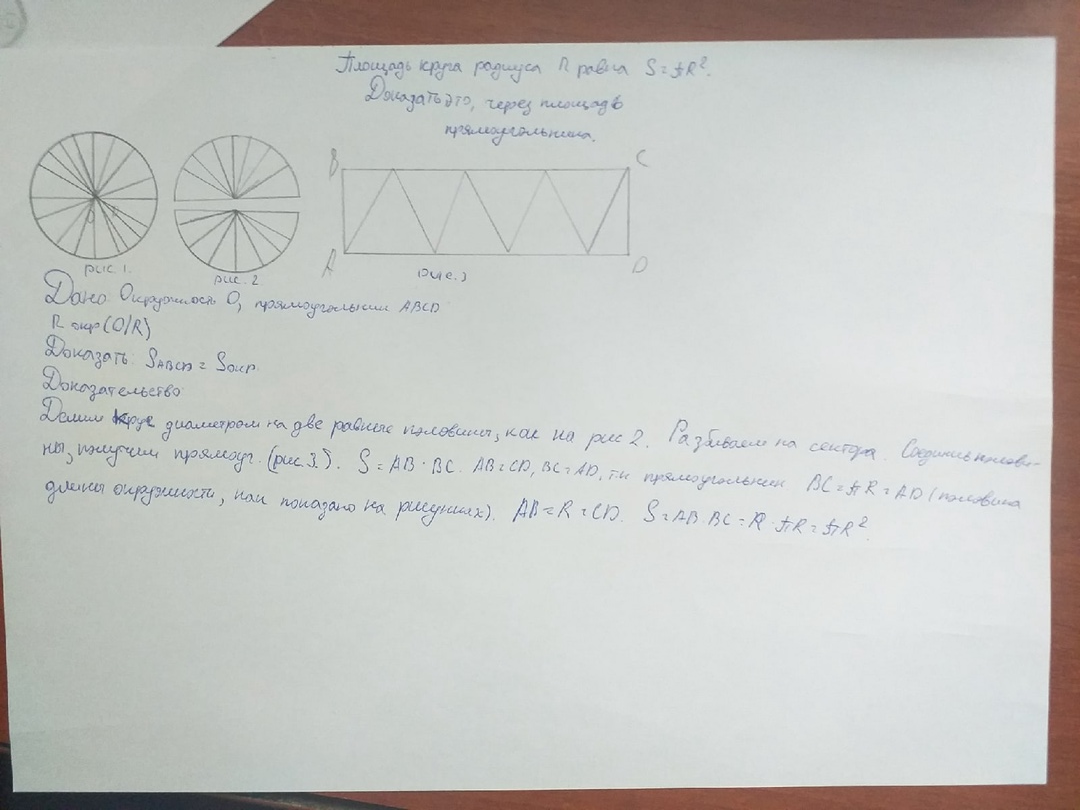 Площадь круга радиуса R равна S = πR².
Доказать это, через площадь
прямоугольника.
B C
A D
рис. 1. рис. 2. рис. 3
Дано: Окружность O, прямоугольник ABCD
R окр (O/R)
Доказать: SABCD = Sокр.
Доказательство
Делим круг диаметром на две равные половины, как на рис 2. Разбиваем на сектора. Соединив полови-
ны, получим прямоуг. (рис. 3.). S = AB · BC. AB = CD, BC = AD, т.к прямоугольник BC = πR = AD (половина
длины окружности, как показано на рисунках). AB = R = CD. S = AB · BC = R · πR = πR².